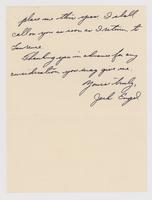 place me this year. I shall
call on you as soon as I return to
Lawrence.
Thanking you in advance for any
consideration you may give me.
Yours truly,
Jack Engel